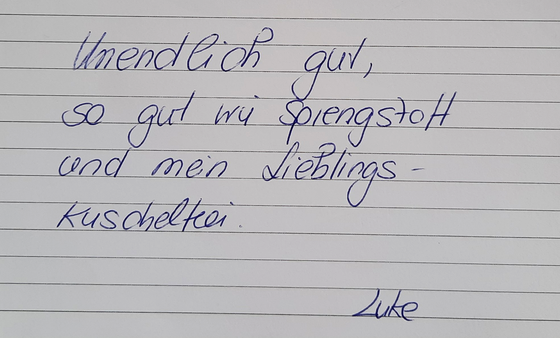 Unendlich gut,
so gut wie Sprengstoff
und mein Lieblings-
kuscheltier.
Luke